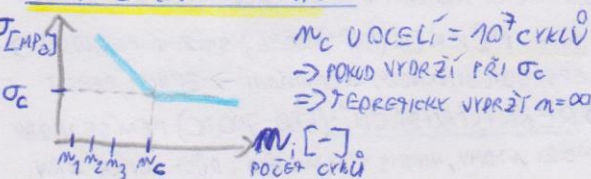 σ [MPa]
σc
n1 n2 n3 nc
ni [-]
POČET CYKLŮ
nc U OCELÍ = 10⁷ CYKLŮ
-> POKUD VYDRŽÍ PŘI σc
=> TEORETICKY VYDRŽÍ n=∞